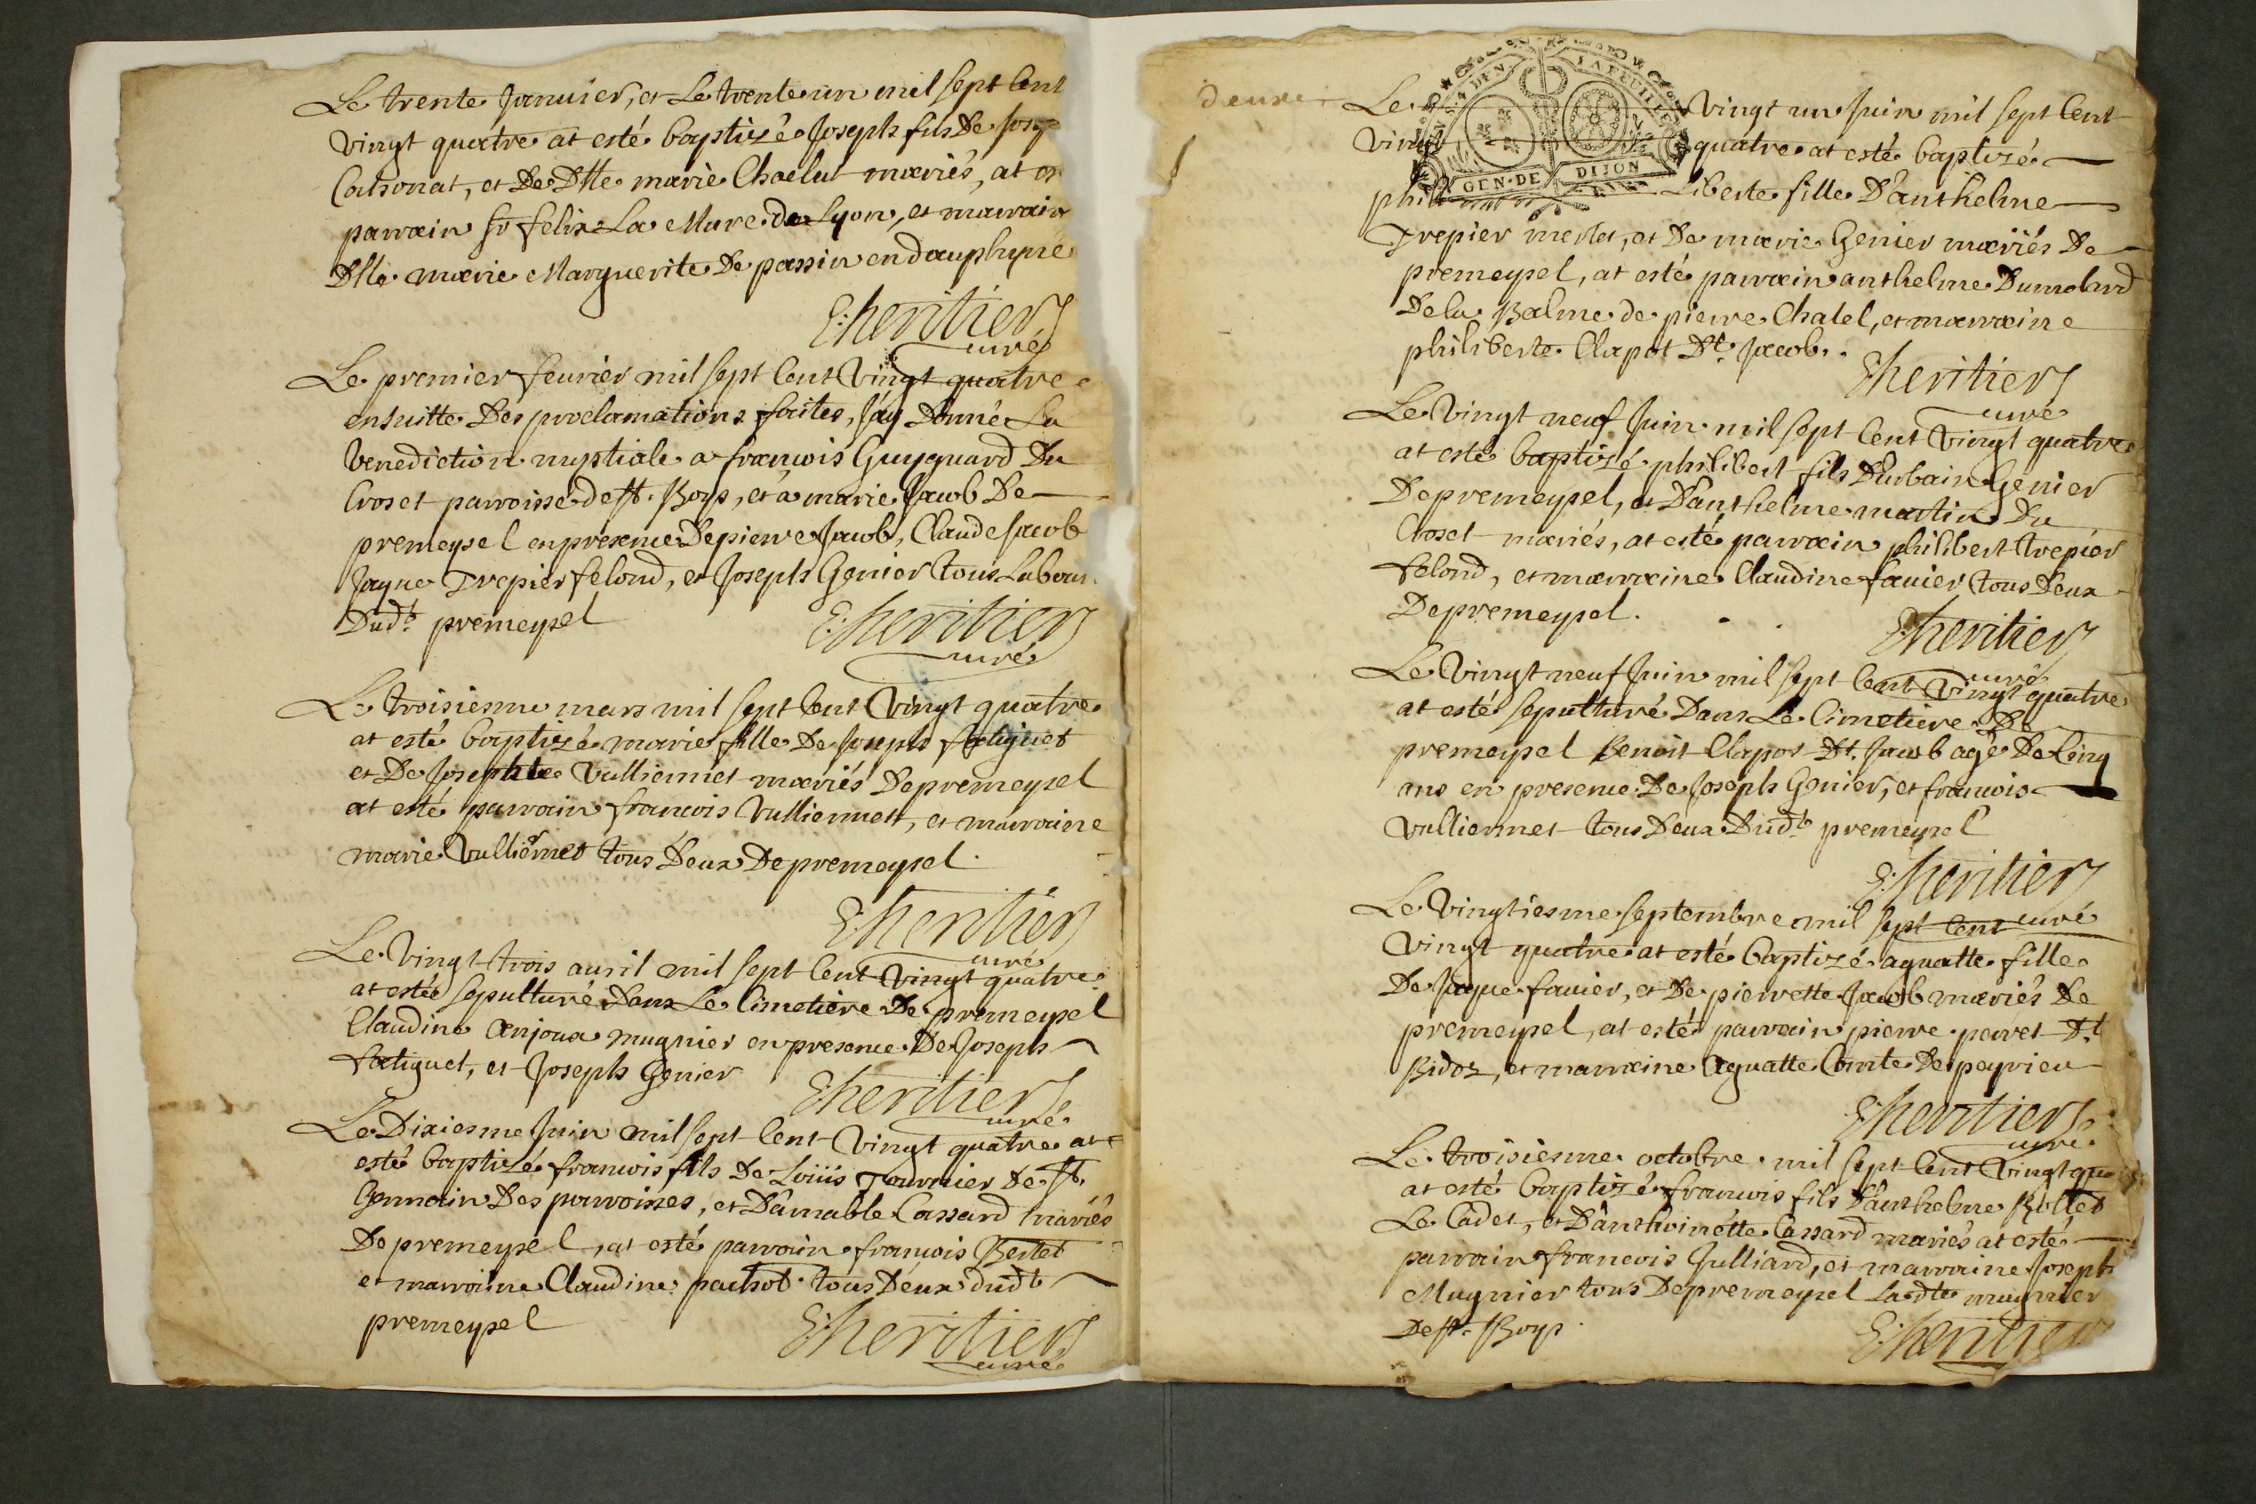 Le trente Januier, et Le trente un mil sept Cent
vingt quatre at esté baptizé Joseph fils De
Cathonat, et De Dlle marie Chaelut mariés, at
parrain sr felix La Mure de Lyon, et marrain
Dlle marie Marguerite De passin en dauphiné
E: heritier
curé
Le premier feurier mil sept Cent Vingt quatre
ensuitte Des proclamations faites, J'ay Donné La
Benediction nuptiale a francois Guyguard Du
Croset parroisse de st. Boys, et a marie Jacob De
premeysel en presence De pierre Jacob, Claude Jacob
Jaque Trepier felond, et Joseph Genier tous
Dudt. premeysel
E: heritier
curé
Le troisiesme mars mil sept Cent Vingt quatre
at esté baptizé marie fille De Joseph fatiguet
et De Josephte Vulliermet mariés De premeysel
at esté parrain francois Vulliermet, et marraine
marie Vulliermet tous Deux De premeysel.
E: heritier
curé
Le Vingt trois auril mil sept Cent Vingt quatre
at estée sepulturé Dans Le Cimetiere De premeysel
Claudine Anjoux mugnier en presence De Joseph
fatiguet, et Joseph Genier
E: heritier
curé
Le Dixiesme Juin mil sept Cent Vingt quatre at
esté baptizé francois fils De Loüis Tournier De st.
Germain Des parroisses, et D'amable Cassard mariés
De premeysel, at esté parrain francois Bertet
et marraine Claudine pachot tous Deux dudt
premeysel
E: heritier
curé
deuxe
GEN. DE DIJON
Le Vingt un Juin mil sept Cent
Vingt quatre at esté baptizé
phili Liberte fille D'anthelme
Trepier merlet, et De marie Genier mariés De
premeysel, at esté parrain anthelme Dumolard
De la Balme de pierre Chatel, et marraine
philiberte Clapot Dt. Jacob.
E: heritier
curé
Le Vingt neuf Juin mil sept Cent Vingt quatre
at esté baptizé philibert fils D'urbain Genier
De premeysel, et D'anthelme martin Du
Croset mariés, at esté parrain philibert trepier
felond, et marraine Claudine fauier tous Deux
De premeysel.
E: heritier
curé
Le Vingt neuf Juin mil sept Cent Vingt quatre
at esté sepulturé Dans Le Cimetiere De
premeysel Benoit Clapot Dt. Jacob agé De Cinq
ans en presence De Joseph Genier, et francois
Vulliermet tous Deux Dudt. premeysel
E: heritier
curé
Le Vingtiesme septembre mil sept Cent
Vingt quatre at esté baptizé aguatte fille
De Jaque fauier, et De pierrette Jacob mariés De
premeysel, at esté parrain pierre perret Dt
Bidoz, et marraine Aguatte Comte De peyrieu
E: heritier
curé
Le troisiesme octobre mil sept Cent Vingt qua
at esté baptizé francois fils D'anthelme Bollet
Le Cadet, et D'anthoinette Cassard mariés at esté
parrain francois Julliard, et marraine Joseph
Mugnier tous De premeysel Ladte mugnier
De st. Boys.
E: heritier